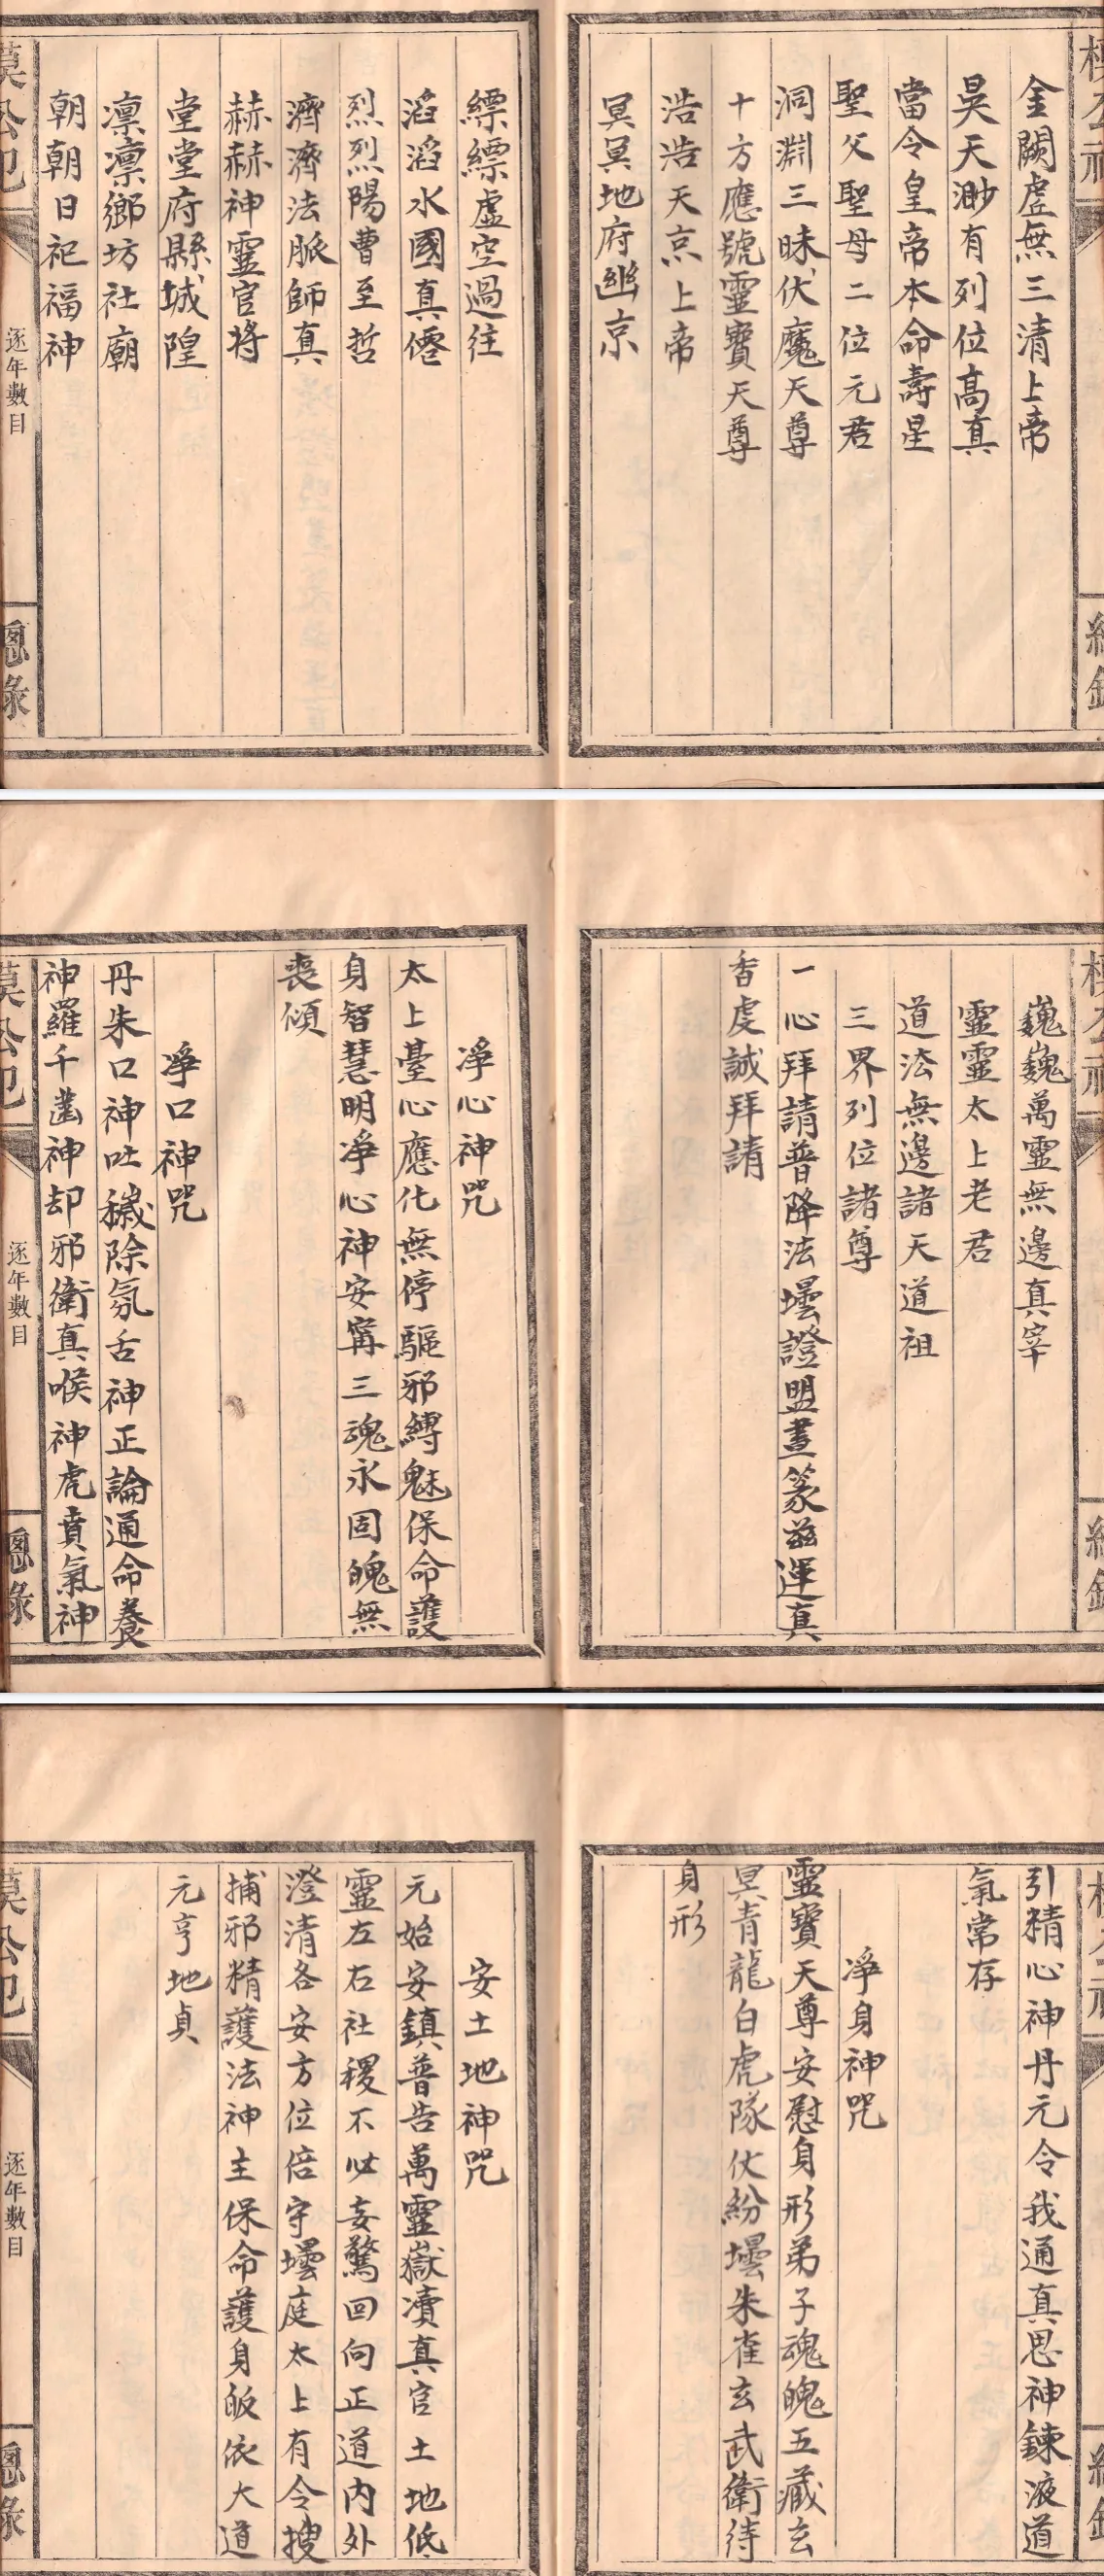 金闕虛無三清上帝
昊天渺有列位髙真
當令皇帝本命壽星
聖父聖母二位元君
洞淵三昧伏魔天尊
十方應號靈寶天尊
浩浩天京上帝
冥冥地府幽京
縹縹虛空過往
滔滔水國真僊
烈烈陽曹至哲
濟濟法脈師真
赫赫神靈官将
堂堂府縣城隍
凛凛鄉坊社廟
朝朝日祀福神
逐年數目
總錄
巍巍萬靈無邊真宰
靈靈太上老君
道法無邊諸天道祖
三界列位諸尊
一心拜請普降法壇證盟晝篆茲運真
香虔誠拜請
凈心神咒
太上臺心應化無停驅邪縛魅保命護
身智慧明凈心神安甯三魂永固魄無
喪傾
凈口神咒
丹朱口神吐穢除氛舌神正論通命養
神羅千齒神却邪衛真喉神虎賁氣神
逐年數目
總錄
引精心神丹元令我通真思神鍊液道
氣常存
凈身神咒
靈寶天尊安慰身形弟子魂魄五藏玄
冥青龍白虎隊仗紛壇朱雀玄武衛待
身形
安土地神咒
元始安鎮普告萬靈嶽瀆真官土地低
靈左右社稷不必妄驚回向正道内外
澄清各安方位倍守壇庭太上有令搜
捕邪精護法神主保命護身皈依大道
元亨地貞
逐年數目
總錄